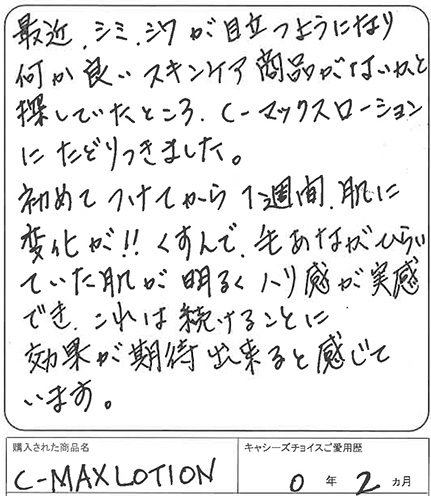 最近、シミ、シワが目立つようになり
何か良いスキンケア商品がないかと
探していたところ、C-マックスローション
にたどりつきました。
初めてつけてから1週間、肌に
変化が!!くすんで、毛あながひらい
ていた肌が明るくハリ感が実感
でき、これは続けることに
効果が期待出来ると感じて
います。
購入された商品名
キャシーズチョイスご愛用歴
C-MAX LOTION
0年2ヵ月